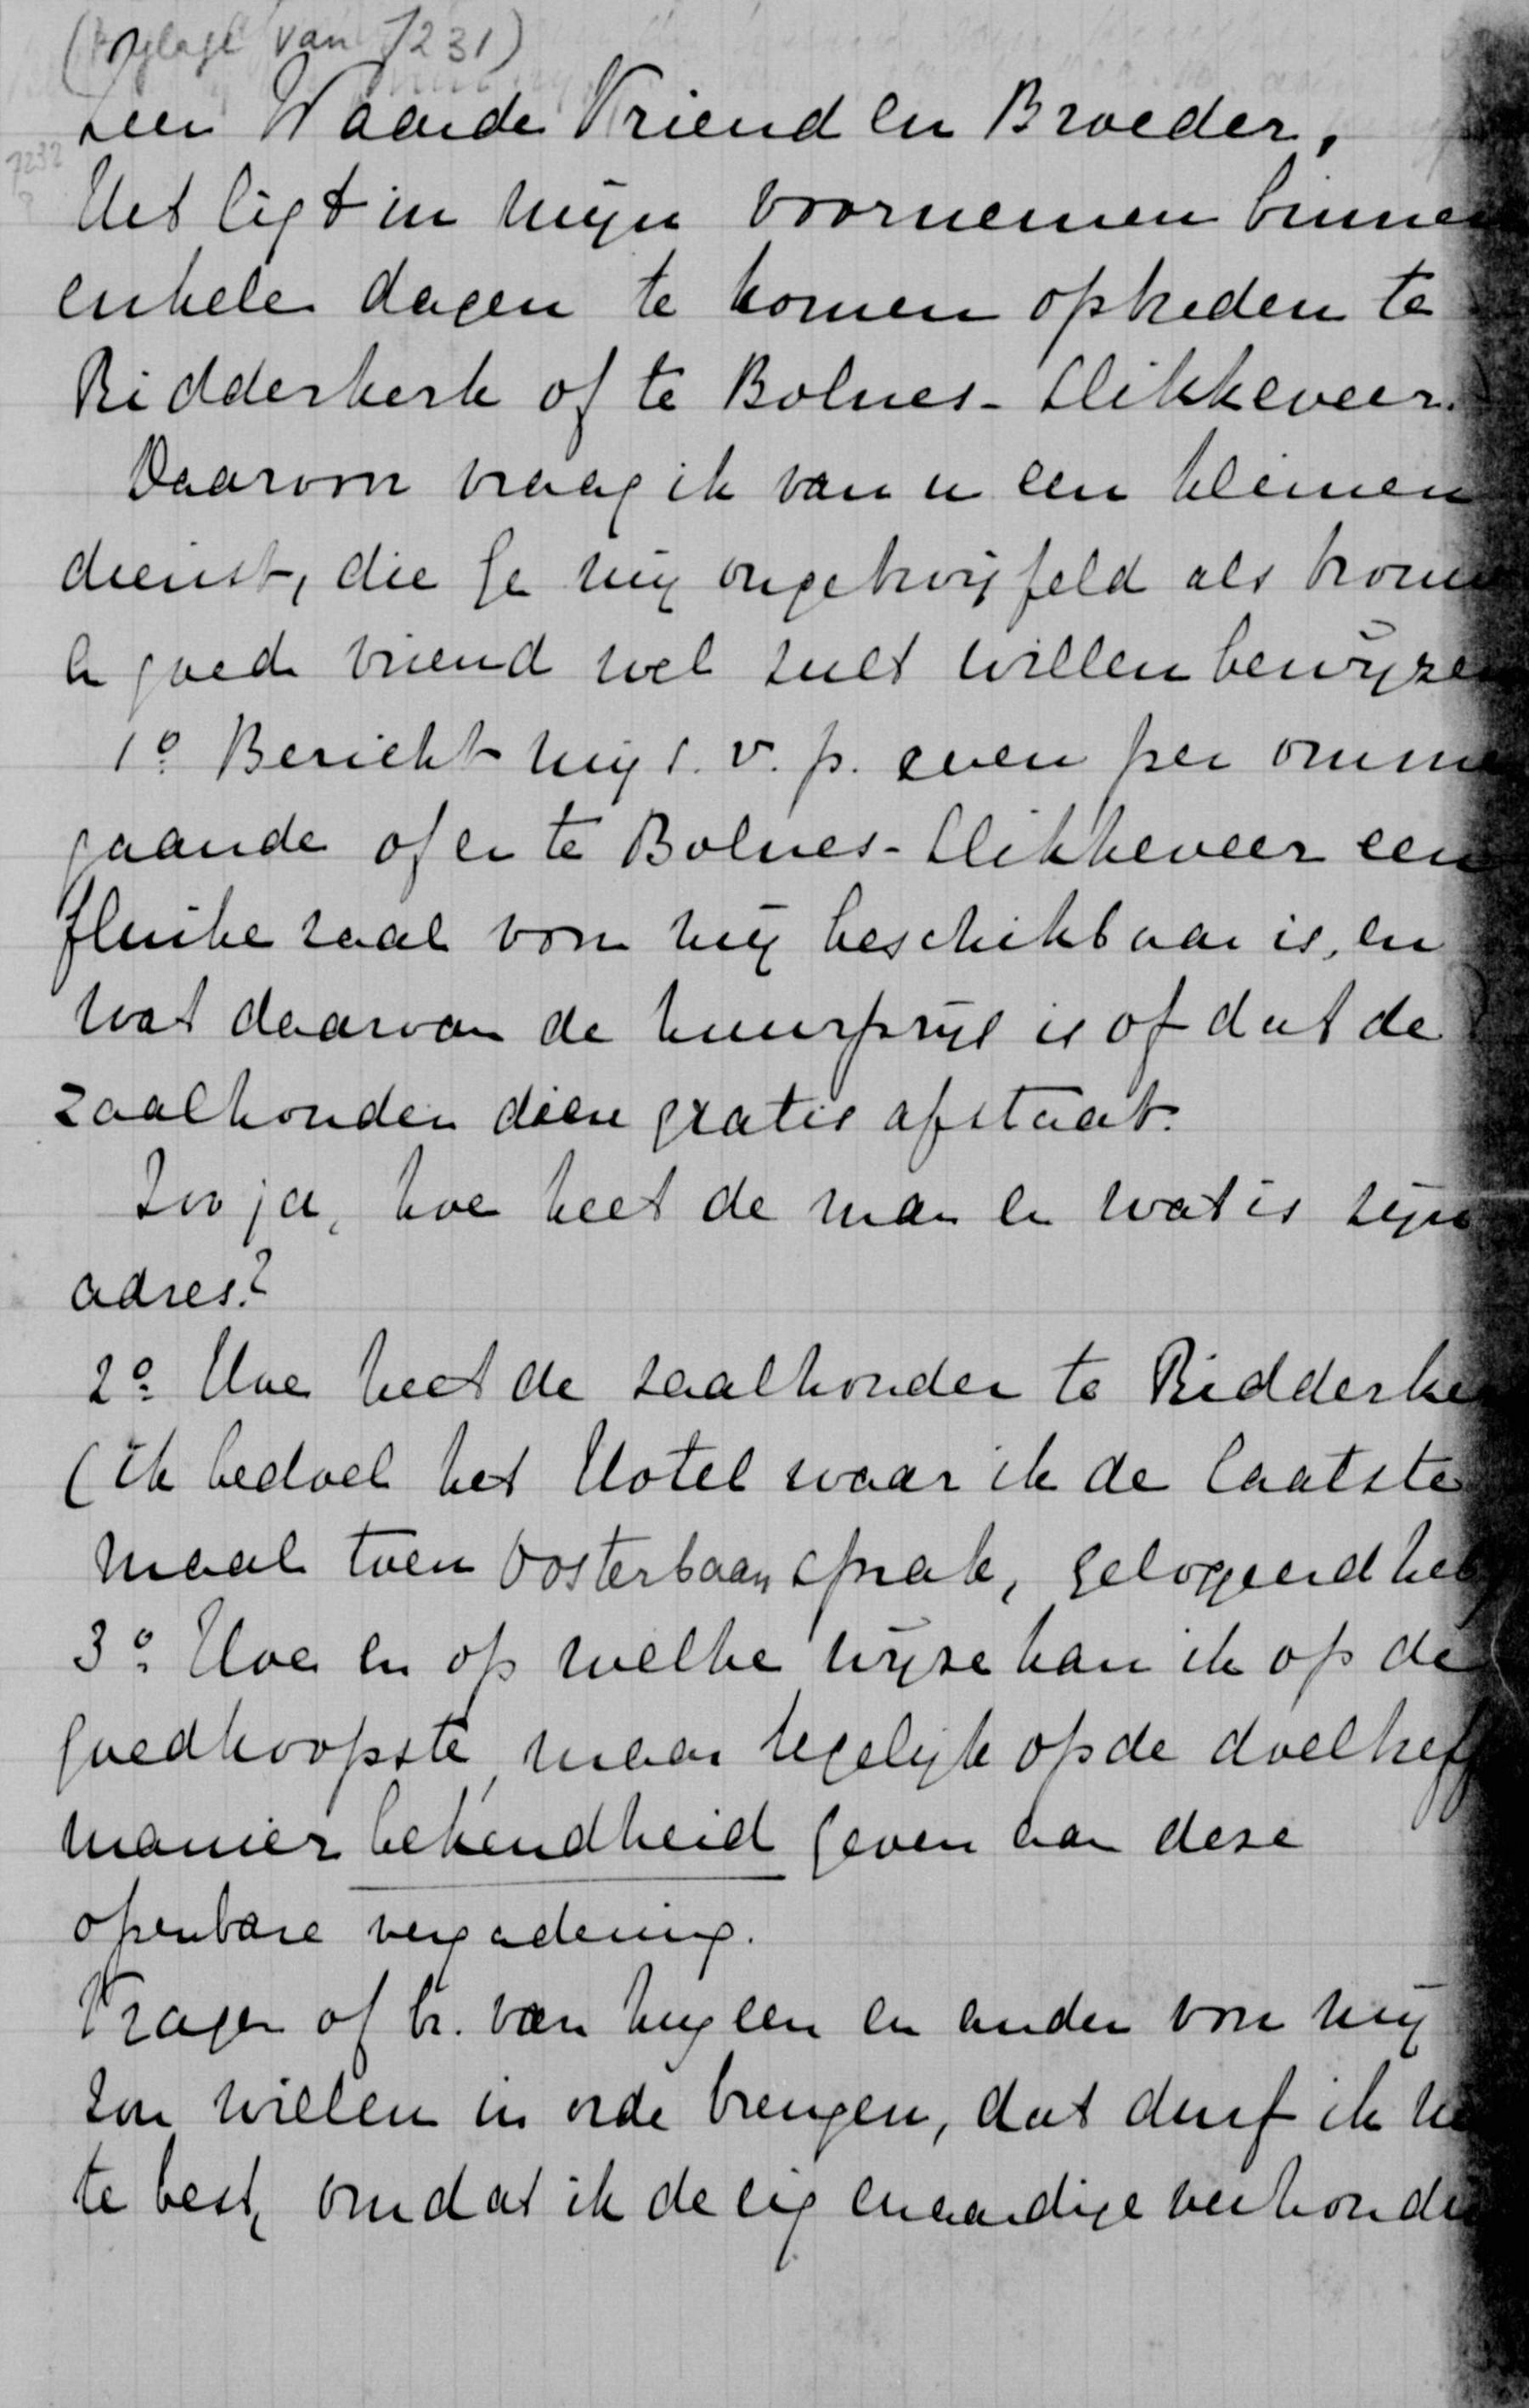 (Bylage van 7231)
Zeer Waarde Vriend en Broeder,
7232
?
Het ligt in mijn voornemen binnen
enkele dagen te komen optreden te
Ridderkerk of te Bolnes-Slikkeveer.
Daarom vraag ik van u een kleinen
dienst, die Ge mij ongetwijfeld als trouw
en goede vriend wel zult willen bewijzen
1o Bericht mij s.v.p. even per omme
gaande of er te Bolnes-Slikkeveer een
flinke zaal voor mij beschikbaar is, en
wat daarvan de huurprijs is of dat de
zaalhouder dien gratis afstaat.
Zoo ja, hoe heet de man en wat is zijn
adres?
2o Hoe heet de zaalhouder te Ridderke
(ik bedoel het Hotel waar ik de laatste
maal toen Oosterbaan sprak, gelogeerd heb
3o Hoe en op welke wijze kan ik op de
goedkoopste, maar tegelijk op de doeltreff
manier bekendheid geven aan deze
openbare vergadering.
Vragen of br. van een en ander voor mij
zou willen in orde brengen, dat durf ik
te best, omdat ik de eigenaardige verhoudi